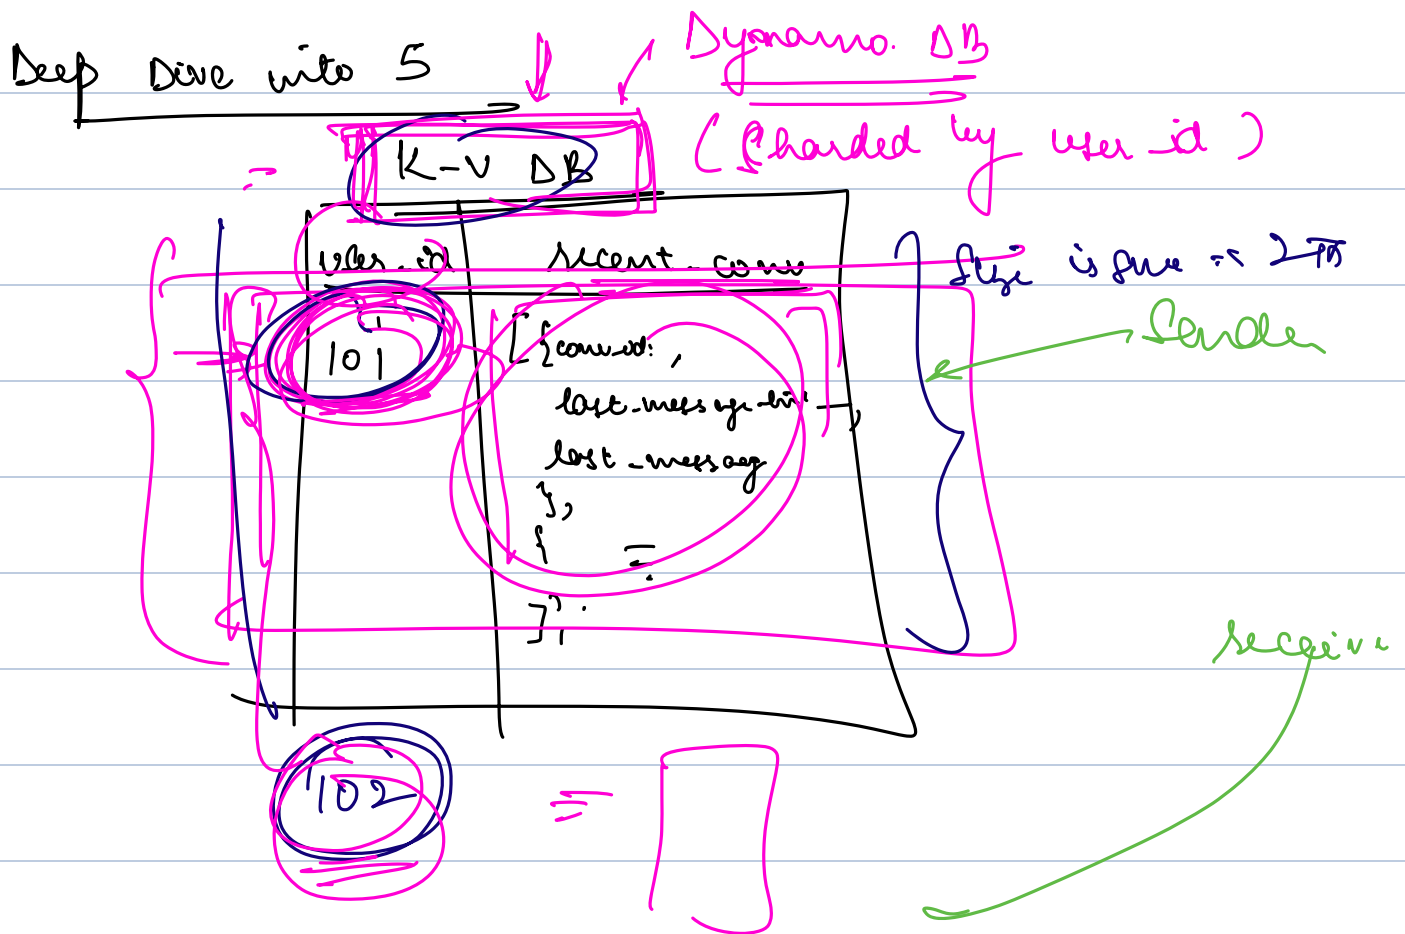 Deep Dive into 5
Dyanamo. DB
K-V DB
(Sharded by user_id)
user_id
recent_conv
Size is fine
101
[{conv_id: ,
Sender
last_message_tim —,
last_message
},
{
}];
receive
102